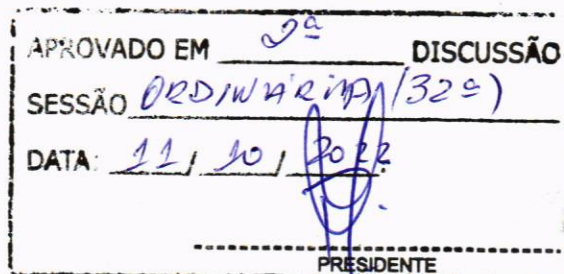 APROVADO EM 2ª DISCUSSÃO
SESSÃO ORDINÁRIA (32ª)
DATA: 11 / 10 / 2022
PRESIDENTE